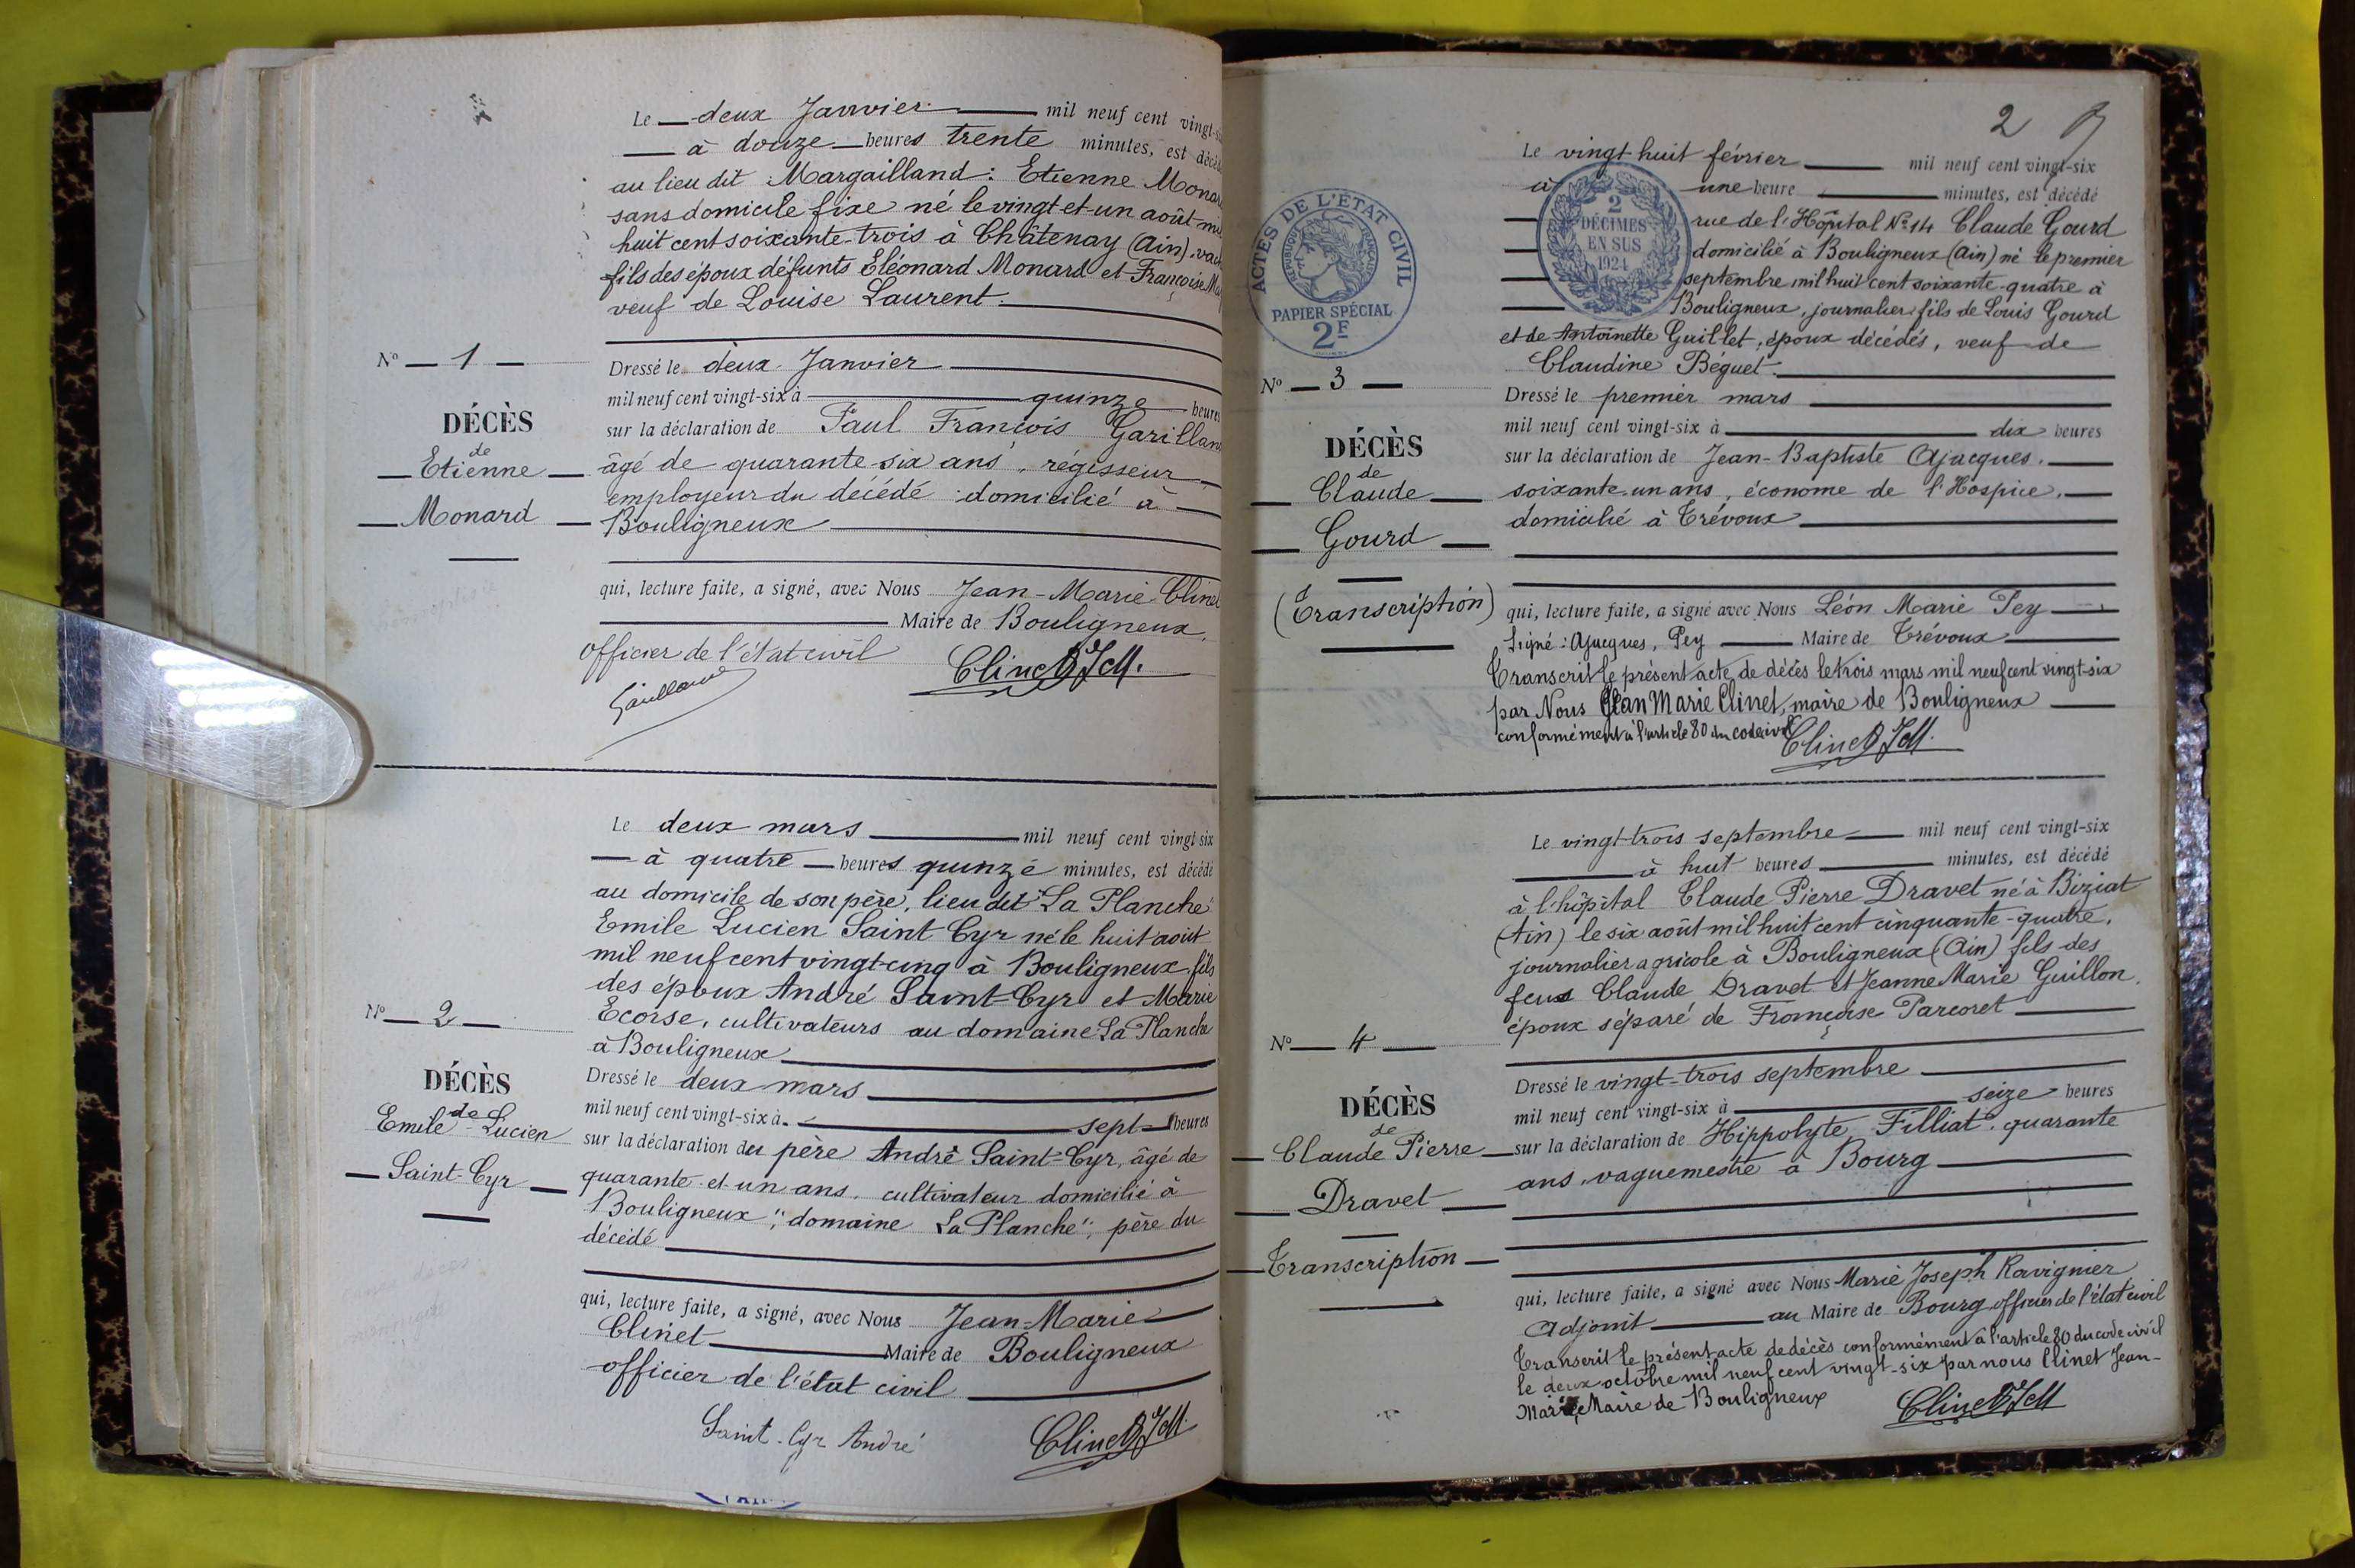 Le deux Janvier mil neuf cent vingt-six
à douze heures trente minutes, est décédé
au lieu dit Margailland : Etienne Monard
sans domicile fixe né le vingt-et-un août mil
huit cent soixante-trois à Châtenay (Ain)
fils des époux défunts Eléonard Monard et Françoise
veuf de Louise Laurent.
N° 1
DÉCÈS
de
Etienne
Monard
Dressé le deux Janvier
mil neuf cent vingt-six à quinze heures
sur la déclaration de Paul François
âgé de quarante six ans, régisseur
employeur du décédé domicilié à
Bouligneux
qui, lecture faite, a signé, avec Nous Jean-Marie Clinet
Maire de Bouligneux,
officier de l'état civil
Clinet JM.
Le deux mars mil neuf cent vingt-six
à quatre heures quinze minutes, est décédé
au domicile de son père, lieu dit "La Planche"
Emile Lucien Saint Cyr né le huit août
mil neuf cent vingt-cinq à Bouligneux fils
des époux André Saint-Cyr et Marie
Ecorse, cultivateurs au domaine La Planche
à Bouligneux
N° 2
DÉCÈS
de
Emile-Lucien
Saint-Cyr
Dressé le deux mars
mil neuf cent vingt-six à sept heures
sur la déclaration du père André Saint-Cyr, âgé de
quarante et un ans, cultivateur domicilié à
Bouligneux "domaine La Planche", père du
décédé
qui, lecture faite, a signé, avec Nous Jean-Marie
Clinet Maire de Bouligneux
officier de l'état civil
Saint-Cyr André
Clinet JM
2
ACTES DE L'ÉTAT CIVIL
RÉPUBLIQUE FRANÇAISE
PAPIER SPÉCIAL
2F
2
DÉCIMES
EN SUS
1924
Le vingt huit février mil neuf cent vingt-six
à une heure minutes, est décédé
rue de l'Hôpital N° 14 Claude Gourd
domicilié à Bouligneux (Ain) né le premier
septembre mil huit cent soixante-quatre à
Bouligneux, journalier fils de Louis Gourd
et de Antoinette Guillet, époux décédés, veuf de
Claudine Béguet.
N° 3
DÉCÈS
de
Claude
Gourd
(Transcription)
Dressé le premier mars
mil neuf cent vingt-six à dix heures
sur la déclaration de Jean-Baptiste Ajacques,
soixante-un ans, économe de l'Hospice,
domicilié à Trévoux
qui, lecture faite, a signé avec Nous Léon Marie Pey
Signé : Ajacques, Pey Maire de Trévoux
Transcrit le présent acte de décès le trois mars mil neuf cent vingt-six
par Nous Jean Marie Clinet, maire de Bouligneux
conformément à l'article 80 du code civil
Clinet JM.
Le vingt-trois septembre mil neuf cent vingt-six
à huit heures minutes, est décédé
à l'hôpital Claude Pierre Dravet né à Biziat
(Ain) le six août mil huit cent cinquante-quatre,
journalier agricole à Bouligneux (Ain) fils des
feus Claude Dravet et Jeanne Marie Guillon,
époux séparé de Françoise Parcoret
N° 4
DÉCÈS
de
Claude Pierre
Dravet
Transcription
Dressé le vingt-trois septembre
mil neuf cent vingt-six à seize heures
sur la déclaration de Hippolyte Filliat, quarante
ans, vaguemestre à Bourg
qui, lecture faite, a signé avec Nous Marie Joseph Ravignier
Adjoint au Maire de Bourg officier de l'état civil
Transcrit le présent acte de décès conformément à l'article 80 du code civil
le deux octobre mil neuf cent vingt-six par nous Clinet Jean-
Marie Maire de Bouligneux
Clinet JM